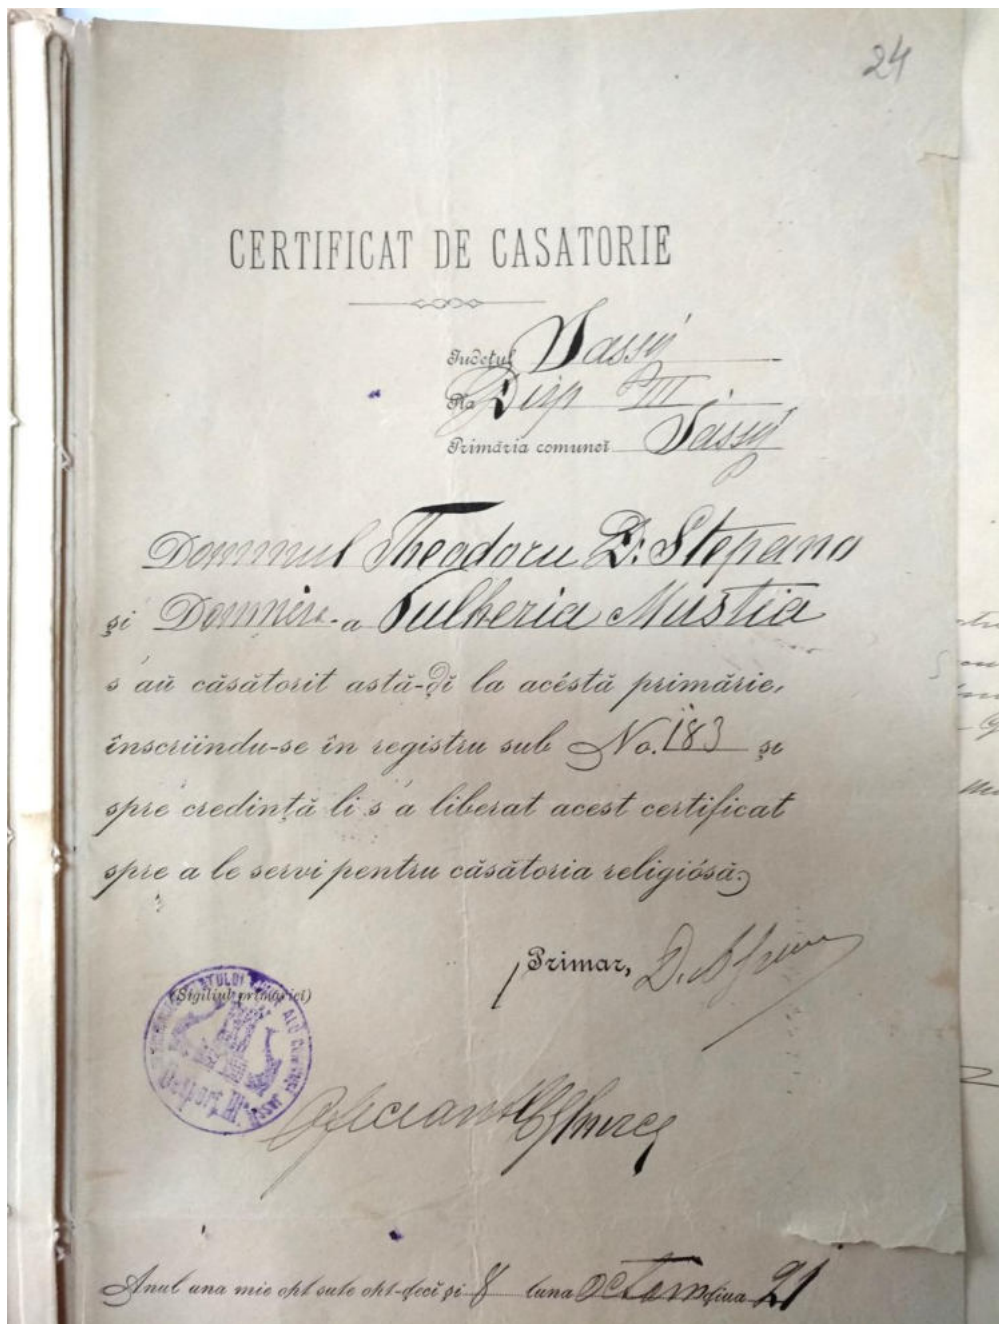 24
CERTIFICAT DE CASATORIE
Judeţul Jassy
Pla Disp III
Primăria comuneĭ Jassy
Domnul Theodoru D. Stefanu
şi Domnişː-a Pulheria Mustia
s'aŭ căsătorit astă-ḑĭ la acéstă primărie,
înscriindu-se în registru sub No. 183 şi
spre credinţă li s'a liberat acest certificat
spre a le servi pentru căsătoria religiósă.
Primar,
(Sigiliul primărieĭ)
Oficiant
Anul una mie opt sute opt-ḑecĭ şi 8 luna Octom ḑiua 21